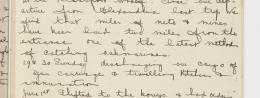 active from Alexandria last trip we
find that miles of nets & mines
have been laid two miles from the
entrance one of the latest methods
of catching submarines.
19th 30 Sunday discharging our cargo of
gun carriage & travelling kitchen &
ammunition
June 1st Shifted to the